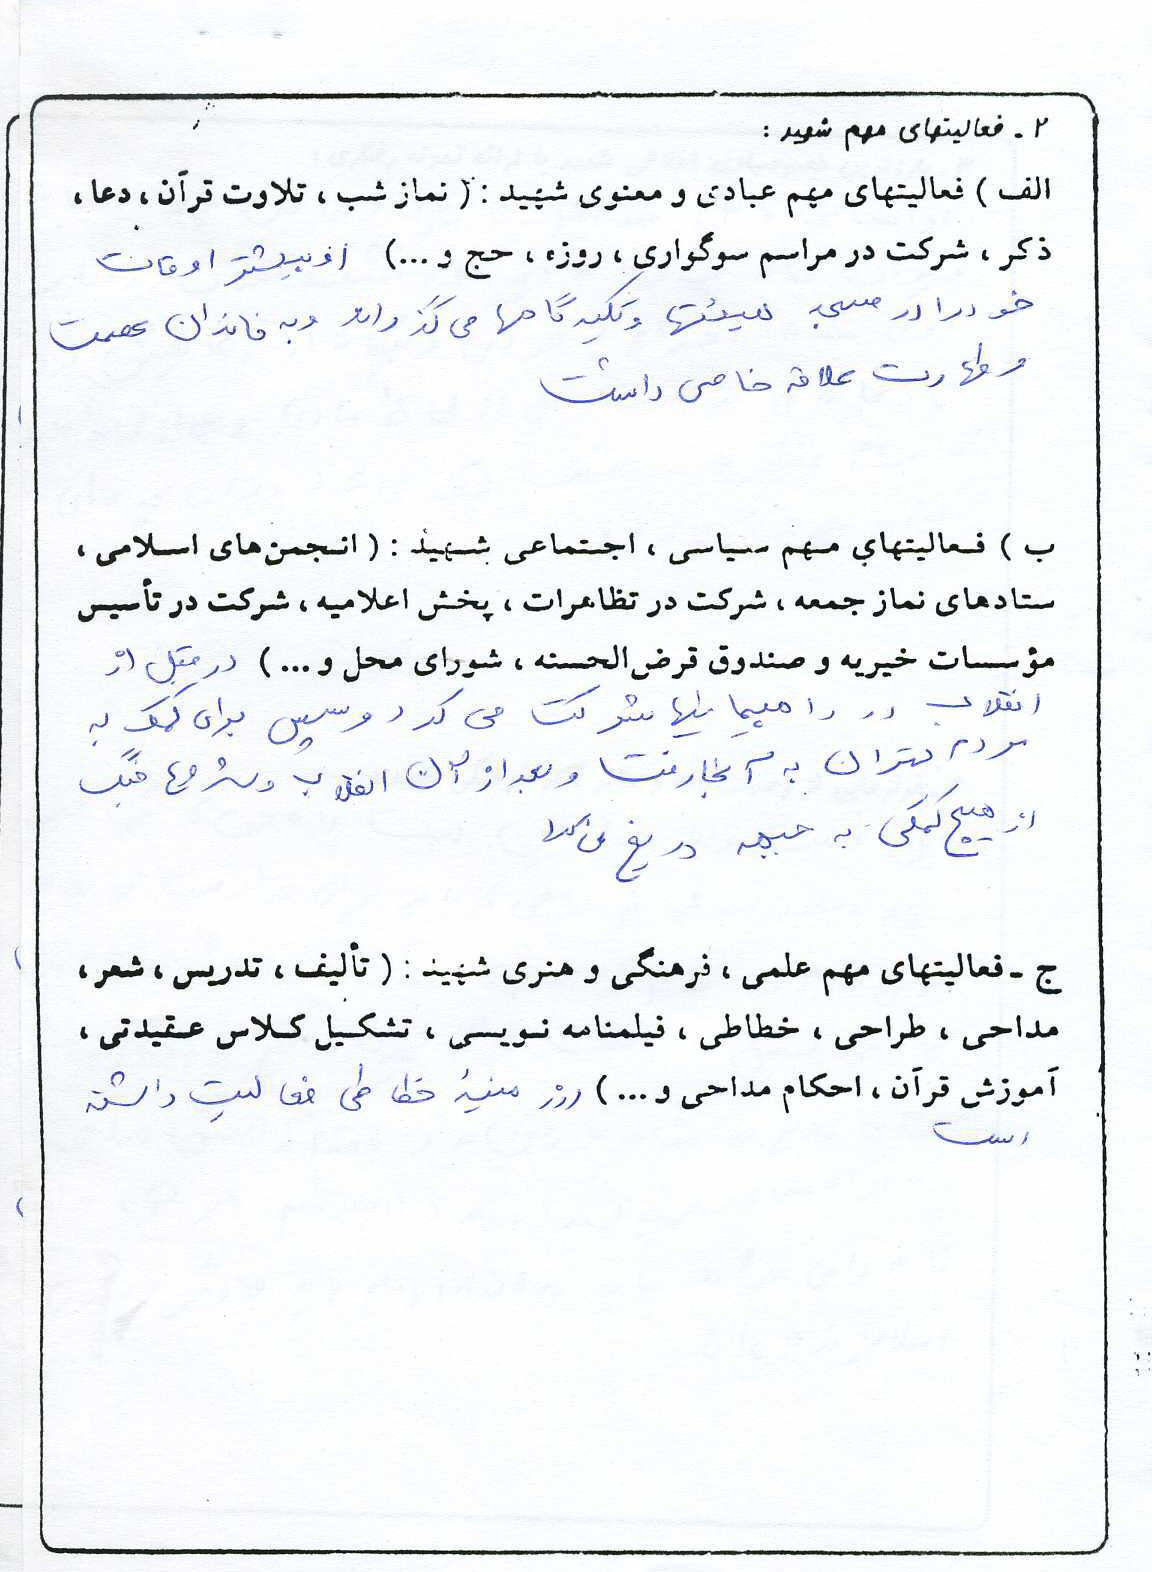 ۲ - فعالیتهای مهم شهید :
الف ) فعالیتهای مهم عبادی و معنوی شهید : ( نماز شب ، تلاوت قرآن ، دعا ،
ذکر ، شرکت در مراسم سوگواری ، روزه ، حج و ... ) او بیشتر اوقات
خود را در مسجد هیئتها و تکیه گاهها می گذراند و به خاندان عصمت
و طهارت علاقه خاصی داشت
ب ) فعالیتهای مهم سیاسی ، اجتماعی شهید : ( انجمن‌های اسلامی ،
ستادهای نماز جمعه ، شرکت در تظاهرات ، پخش اعلامیه ، شرکت در تأسیس
مؤسسات خیریه و صندوق قرض‌الحسنه ، شورای محل و ... ) در قبل از
انقلاب در راهپیمایلیها شرکت می کرد و سپس برای کمک به
مردم تهران به آنجا رفت و بعد از آن انقلاب و جنگ
از هیچ کمکی به جبهه دریغ
ج - فعالیتهای مهم علمی ، فرهنگی و هنری شهید : ( تألیف ، تدریس ، شعر ،
مداحی ، طراحی ، خطاطی ، فیلمنامه نویسی ، تشکیل کلاس عقیدتی ،
آموزش قرآن ، احکام مداحی و ... ) در زمینهٔ خطاطی فعالیت داشته
است